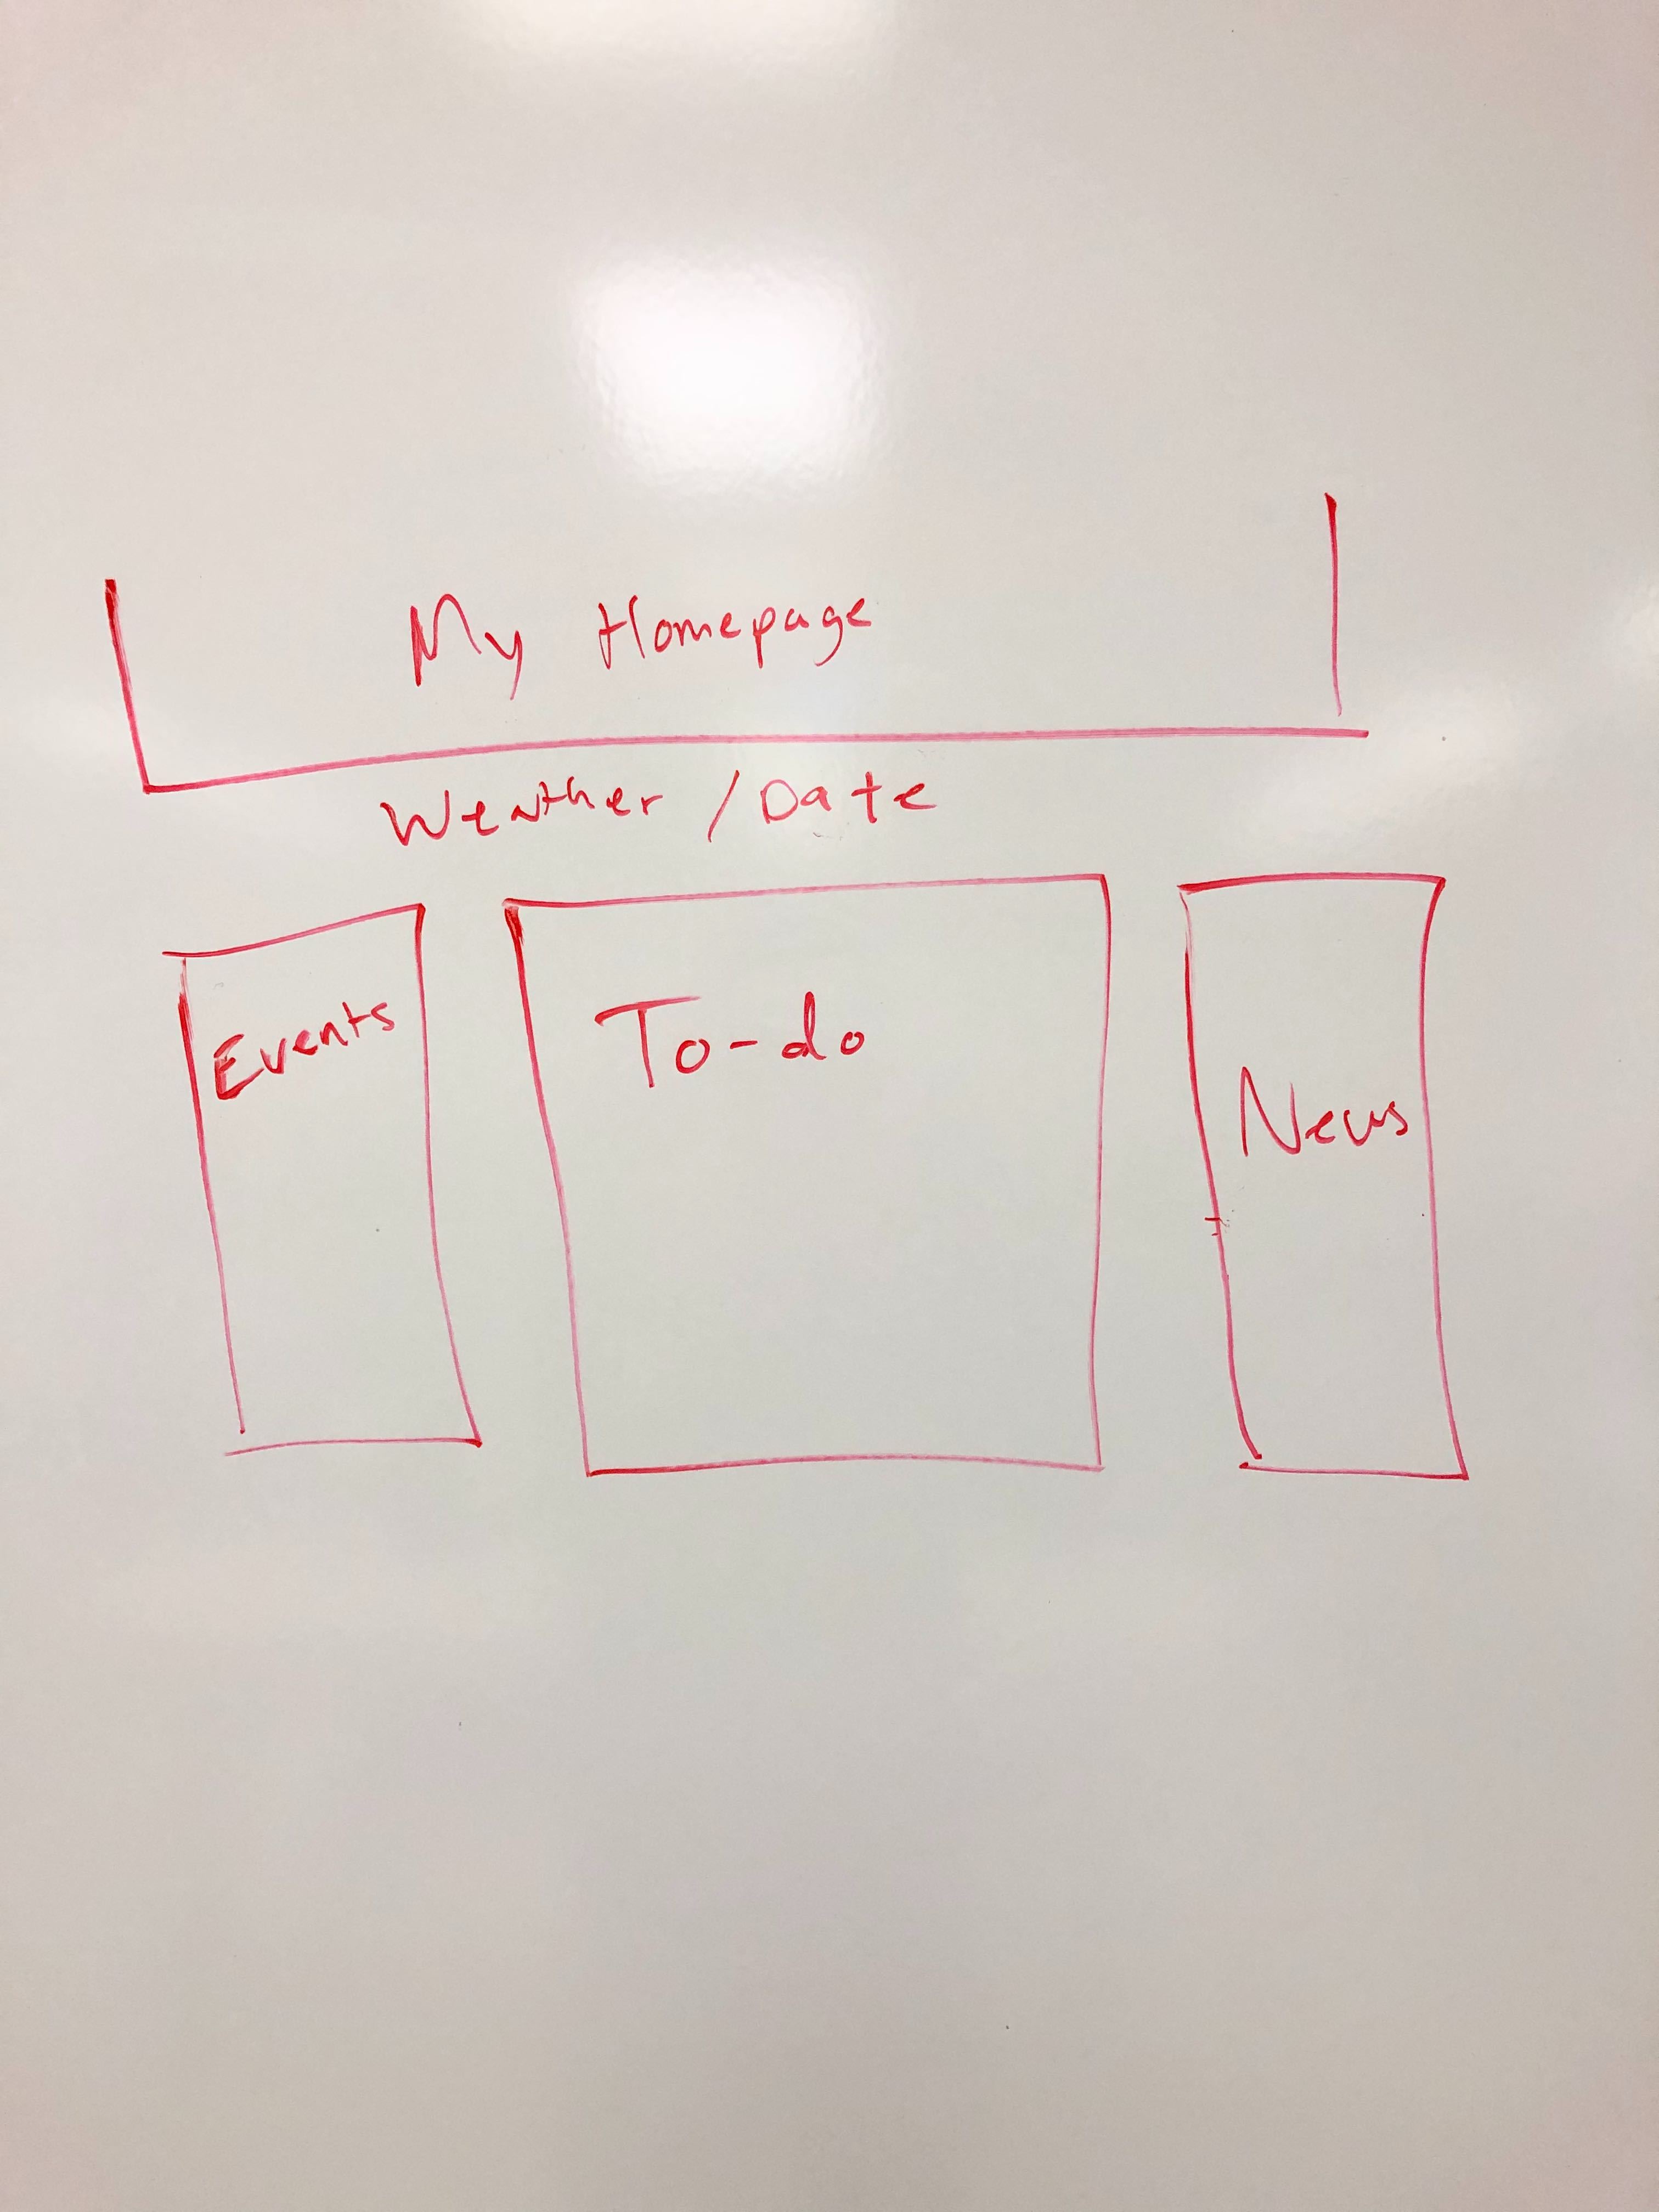 My Homepage
Weather / Date
Events
To-do
News